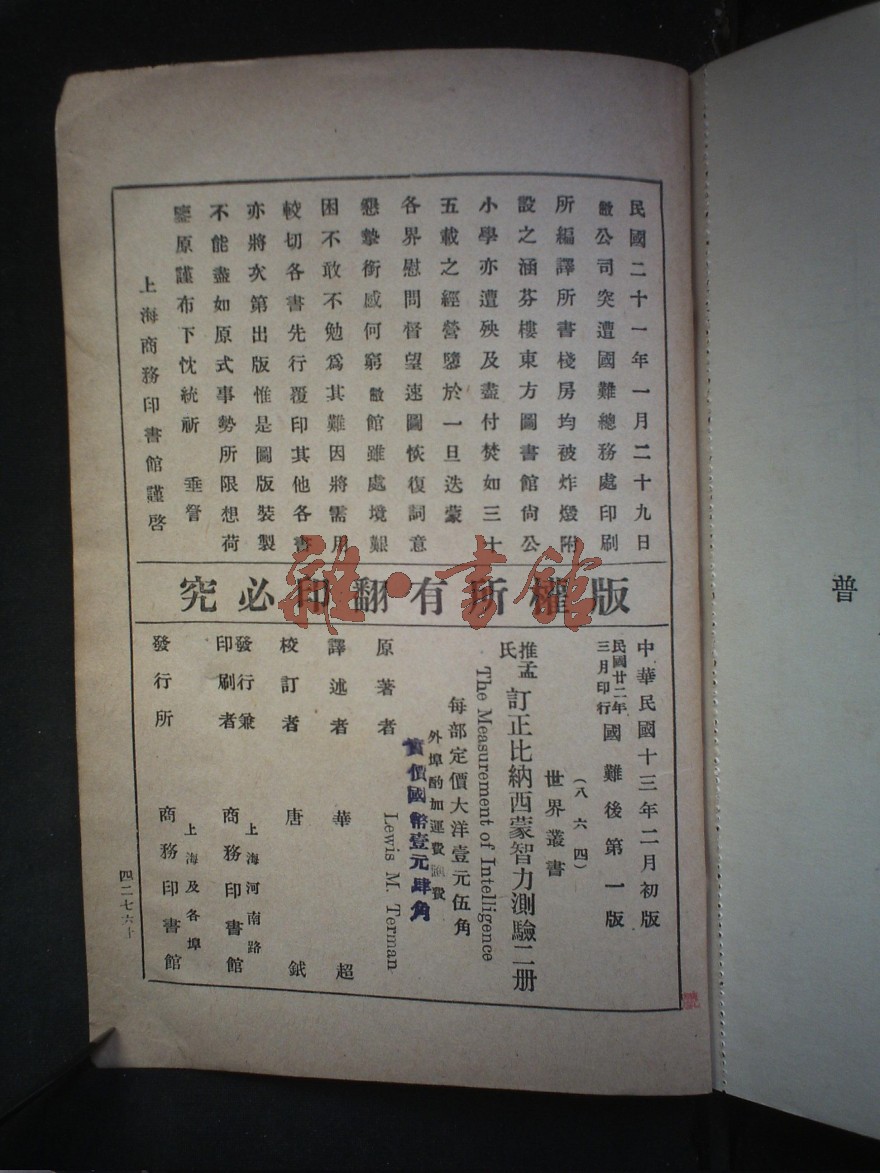 民國二十一年一月二十九日
敝公司突遭國難總務處印刷
所編譯所書棧房均被炸燬附
設之涵芬樓東方圖書館尙公
小學亦遭殃及盡付焚如三十
五載之經營隳於一旦迭蒙
各界慰問督望速圖恢復詞意
懇摯銜感何窮敝館雖處境艱
困不敢不勉爲其難因將需用
較切各書先行覆印其他各書
亦將次第出版惟是圖版裝製
不能盡如原式事勢所限想荷
鑒原謹布下忱統祈 垂詧
上海商務印書館謹啓
究必印翻有所權版
雜·書館
中華民國十三年二月初版
民國廿二年三月印行 國難後第一版
(八六四)
世界叢書
推孟氏 訂正比納西蒙智力測驗二册
The Measurement of Intelligence
每部定價大洋壹元伍角
外埠酌加運費滙費
實價國幣壹元肆角
原著者 Lewis M. Terman
譯述者 華超
校訂者 唐鉞
發行兼印刷者 上海河南路 商務印書館
發行所 上海及各埠 商務印書館
四二七六十
普